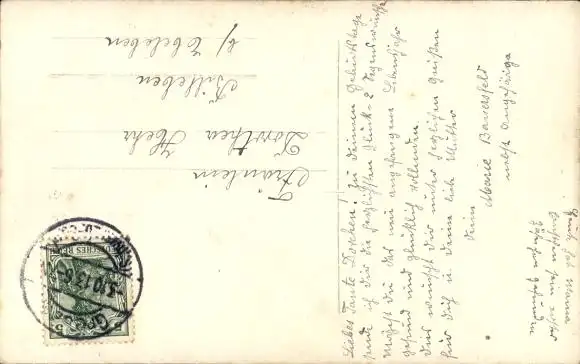 Fräulein
Dorothea Hehr
Billeben
b/ Ebeleben
Liebes Tante Dorchen! Zu deinem Geburtstage
sende ich dir die herzlichsten Glück- & Segenswünsche
Möchtest du das neu angefangene Lebensjahr
gesund und glücklich vollenden.
Dies wünscht dir unter herzlichen Grüßen
für dich u. deine liebe Mutter
deine
Marie Bauersfeld
nebst Angehörige
Mama
DEUTSCHES REICH
5
5